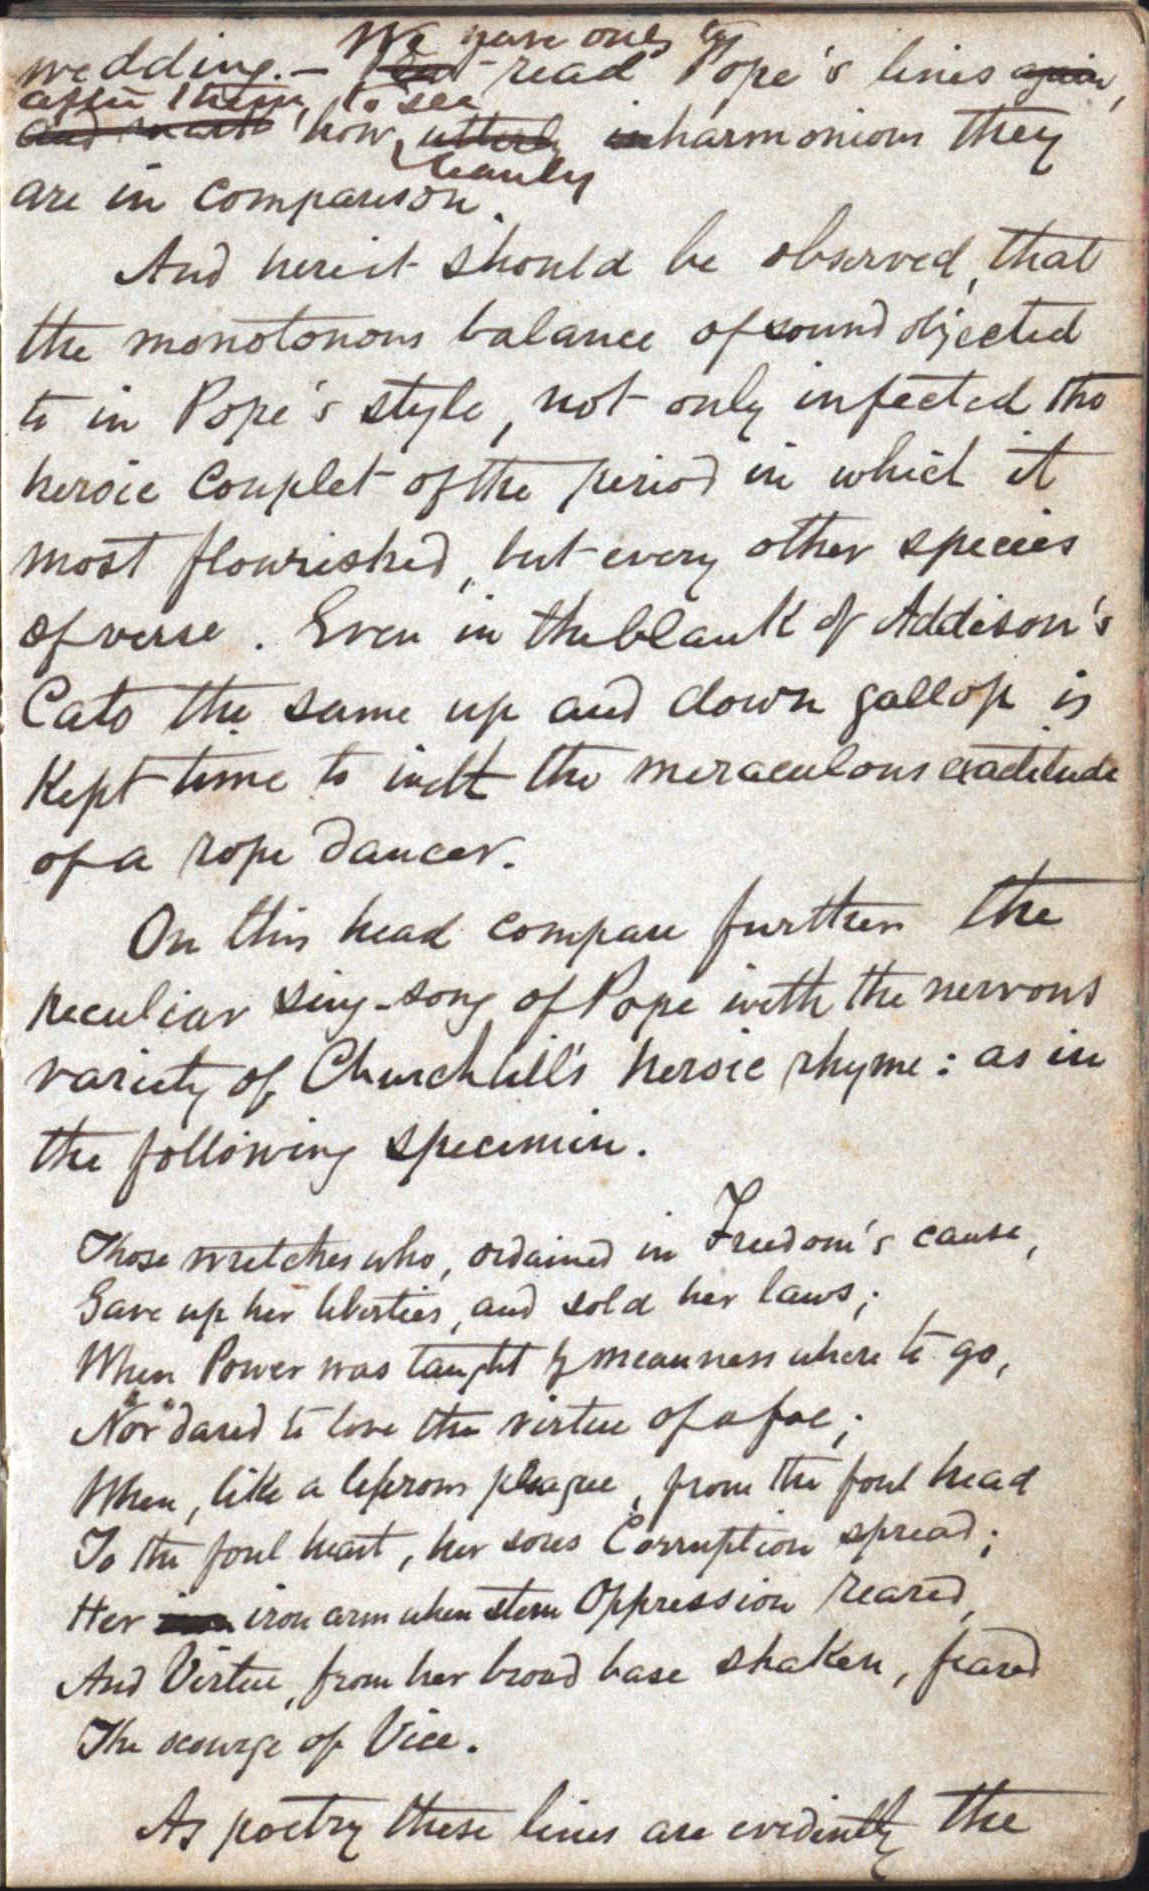 We have only to
wedding.— read Pope's lines again,
after them, to see
and mark how utterly inharmonious they
leanly
are in comparison.
And here it should be observed, that
the monotonous balance of sound objected
to in Pope's style, not only infected the
heroic couplet of the period in which it
most flourished, but every other species
of verse. Even in the blank of Addison's
Cato the same up and down gallop is
kept time to with the meraculous exactitude
of a rope dancer.
On this head compare further the
peculiar sing-song of Pope with the nervous
variety of Churchill's heroic rhyme: as in
the following specimin.
Those wretches who, ordained in Freedom's cause,
Gave up her liberties, and sold her laws;
When Power was taught by meanness where to go,
Nor dared to love the virtue of a foe;
When, like a leperous plague, from the foul head
To the foul heart, her sores Corruption spread;
Her iron arm when stern Oppression reared,
And Virtue, from her broad base shaken, feared
The scourge of Vice.
As poetry these lines are evidintly the